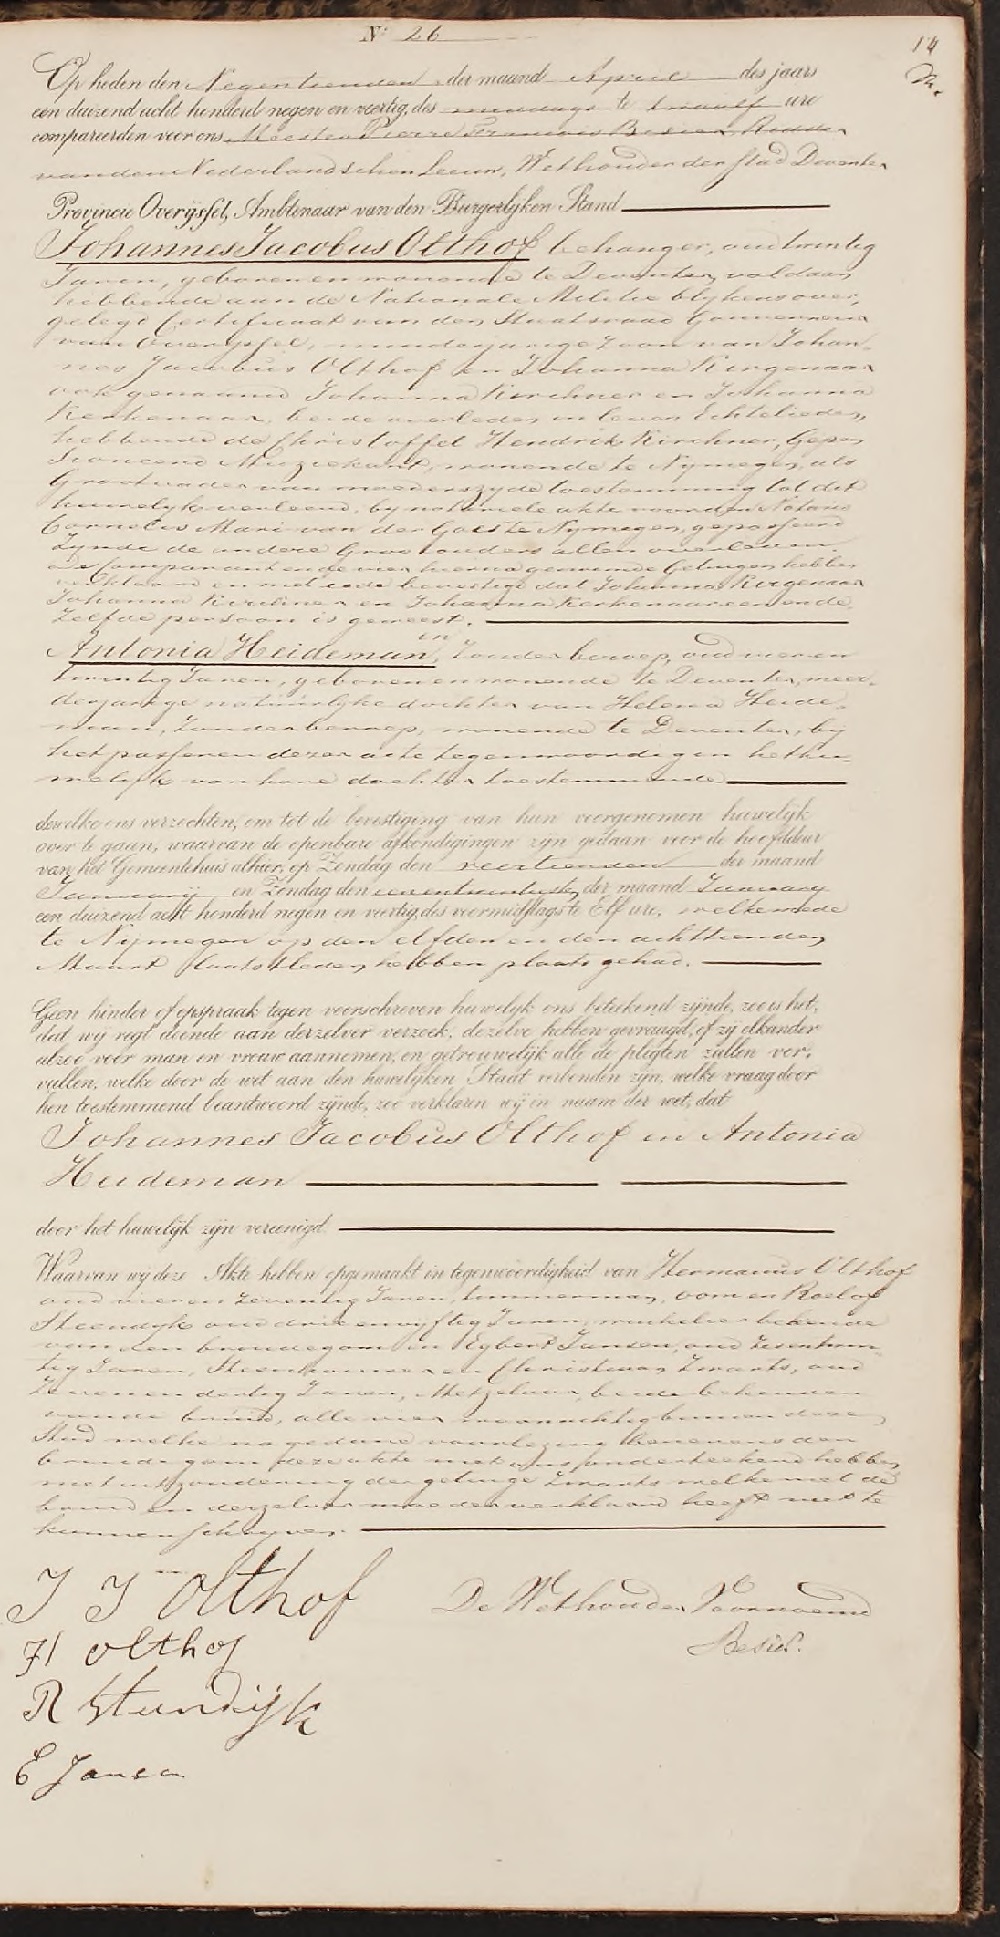 N: 26
14
Op heden den Negentienden der maand April des jaars
een duizend acht honderd negen en veertig, des middags te twaalf ure
compareerden voor ons, Meester Pierre François Besier, Ridder
van den Nederlandschen Leeuw, Wethouder der stad Deventer
Provincie Overijssel, Ambtenaar van den Burgerlijken Stand
Johannes Jacobus Olthof behanger, oud twintig
Jaren, geboren en wonende te Deventer, voldaan
hebbende aan de Nationale Militie blijkens over,
gelegd Certificaat van den Staatsraad Gouverneur
van Overijssel, minderjarige zoon van Johan-
nes Jacobus Olthof en Johanna Kirgenaar
ook genaamd Johanna Kirchner en Johanna
Kerkenaar, beide overleden in leven Echtelieden,
hebbende de Christoffel Hendrik Kirchner, Gepen
sioneerd Muziekant, wonende te Nymegen, als
Grootvader van moederszyde toestemming tot dit
huwelijk verleend, by notariele akte voor den Notaris
Cornelis Mari van der Goes te Nymegen, gepasseerd
Zynde de andere Grootouders allen overleden.
de Comparant en de vier hierna genoemde Getuigen hebben
verklaard en met eede bevestigd dat Johanna Kirgenaar
Johanna Kirchner en Johanna Kerkenaar een en de
zelfde persoon is geweest.
en
Antonia Heideman, zonder beroep, oud vier en
twintig Jaren, geboren en wonende te Deventer, meer-
derjarige natuurlijke dochter van Helena Heide-
man, zonder beroep, wonende te Deventer, bij
het passeren dezer acte tegenwoordig en het hu-
welijk van hare dochter toestemmende
dewelke ons verzochten, om tot de bevestiging van hun voorgenomen huwelijk
over te gaan, waarvan de openbare afkondigingen zijn gedaan voor de hoofddeur
van het Gemeentehuis alhier, op Zondag den veertienden der maand
Januarij en Zondag den een en twintigsten der maand January
een duizend acht honderd negen en veertig, des voormiddags te Elf ure, welke mede
te Nymegen op den elfden en den achttienden
Maart laatstleden hebben plaats gehad.
Geen hinder of opspraak tegen voorschreven huwelijk ons beteekend zijnde, zoo is het,
dat wij regt doende aan derzelver verzoek, dezelve hebben gevraagd, of zij elkander
alzoo voor man en vrouw aannemen, en getrouwelijk alle de pligten zullen ver,
vullen, welke door de wet aan den huwelijken Staat verbonden zijn, welke vraag door
hen toestemmend beantwoord zijnde, zoo verklaren wij in naam der wet, dat
Johannes Jacobus Olthof en Antonia
Heideman
door het huwelijk zijn vereenigd.
Waarvan wij deze Akte hebben opgemaakt in tegenwoordigheid van Hermanus Olthof
oud vier en zeventig Jaren, timmerman, oom en Roelof
Steendyk oud drie en vyftig Jaren, winkelier bekende
van den bruidegom en Egbert Jansen, oud zesentwin-
tig Jaren, Steenhouwer en Christiaan Zwarts, oud
zeven en dertig Jaren, Metzelaar, beide bekenden
van de bruid, alle vier woonachtig binnen deze
Stad welke na gedane voorlezing benevens den
bruidegom deze akte met ons onderteekend hebben,
met uitzondering der getuige Zwarts welke met de
bruid en derzelver moeder verklaard heeft niet te
kunnen schryven.
J J Olthof
H olthof
R Steendijk
E Jansen
De Wethouder Voornoemd
Besier.